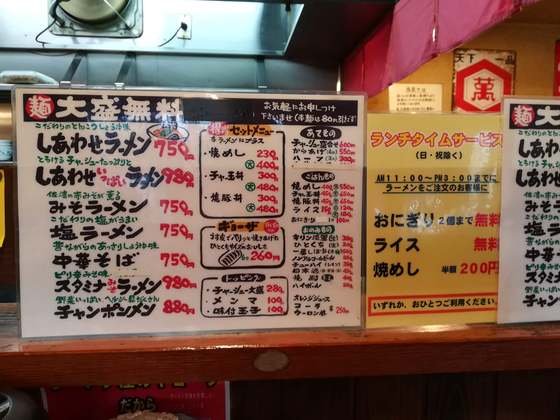 麺 大盛無料
お気軽にお申しつけ
下さいませ
こだわりのとんこつしょうゆ味
しあわせラーメン 750円
とろける チャーシューたっぷり
しあわせいっぱいラーメン 980円
佐渡の赤みそが薫る
みそラーメン 750円
こだわりの塩がうまい
塩ラーメン 750円
昔ながらのあっさりしょうゆ味
中華そば 750円
ピリ辛みそ味
スタミナみそラーメン 980円
野菜いっぱい ヘルシー
チャンポンメン 880円
セットメニュー
ラーメンにプラス
・焼めし 230円
大 400円
・チャー玉丼 300円
大 480円
・焼豚丼 300円
大 480円
ギョーザ
ひとくち
6コ 260円
トッピング
・チャーシュー大盛 280円
・メンマ 100円
・味付玉子 100円
あてもの
チャーシュー盛合せ 600円
からあげ
ごはんもの
焼めし
チャー玉丼
焼豚丼
ライス
おにぎり
おのみもの
ハイボール
オレンジジュース
コーラ
ウーロン茶
各250円
ランチタイムサービス
(日・祝除く)
AM11:00〜PM3:00までに
ラーメンをご注文のお客様に
おにぎり 2個まで 無料
ライス 無料
焼めし 半額 200円
いずれか、おひとつご利用ください。
天下一品
萬
麺 大
しあわ
しあわせ
みそラ
塩ラー
中華
スタミナ
チャン
だから